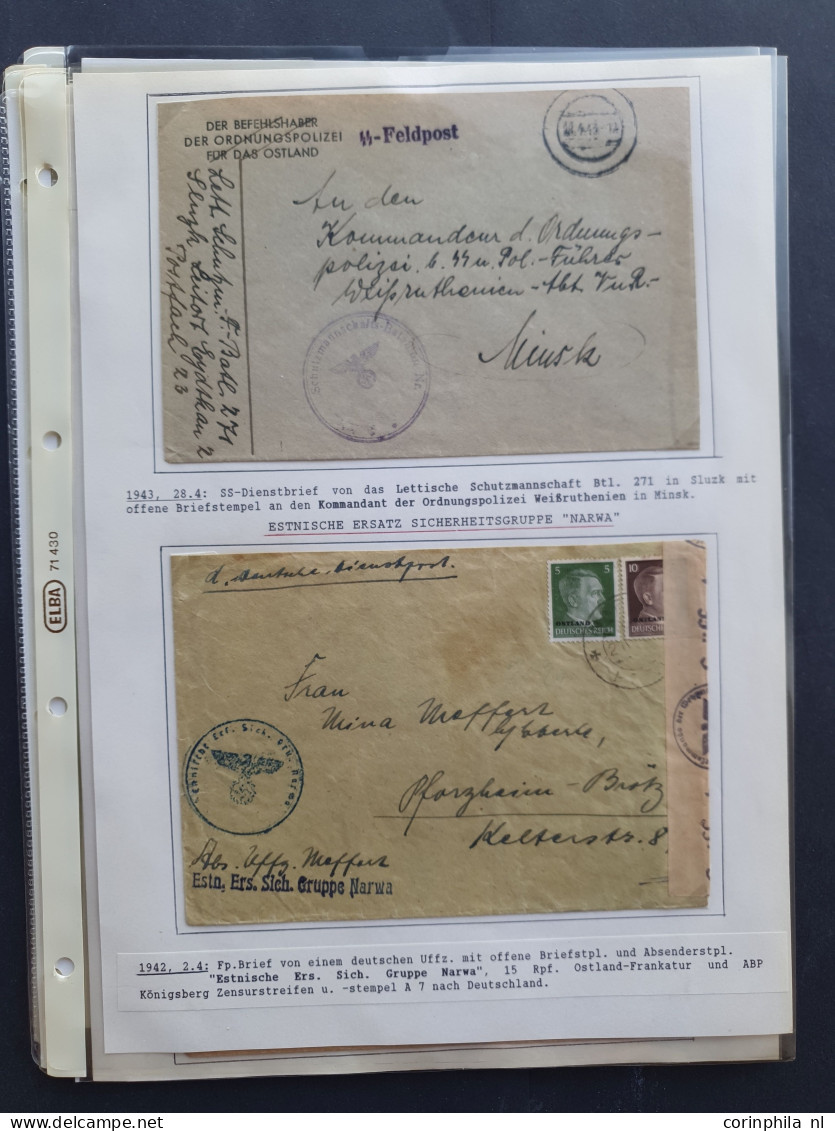 DER BEFEHLSHABER
DER ORDNUNGSPOLIZEI
FÜR DAS OSTLAND
SS-Feldpost
An den
Kommandeur d. Ordnungs-
polizei b. SS u. Pol.-Führer
Weißruthenien - Abt.
Minsk
Lett. Schutzm. F. Batl. 271
Sluzk Leitort Eydtkau 2
Postfach 23
Schutzmannschafts-
1943, 28.4: SS-Dienstbrief von das Lettische Schutzmannschaft Btl. 271 in Sluzk mit
offene Briefstempel an den Kommandant der Ordnungspolizei Weißruthenien in Minsk.
ESTNISCHE ERSATZ SICHERHEITSGRUPPE "NARWA"
d. Deutsche Dienstpost.
5 5
OSTLAND
DEUTSCHES REICH
10
OSTLAND
DEUTSCHES
Frau
Mina Meffert
Pforzheim - Brötz
Kelterstr. 8
Estnische Ers. Sich. Gru. Narwa
Abs. Uffz. Meffert
Estn. Ers. Sich. Gruppe Narwa
1942, 2.4: Fp.Brief von einem deutschen Uffz. mit offene Briefstpl. und Absenderstpl.
"Estnische Ers. Sich. Gruppe Narwa", 15 Rpf. Ostland-Frankatur und ABP
Königsberg Zensurstreifen u. -stempel A 7 nach Deutschland.
ELBA 71 430
www.corinphila.nl